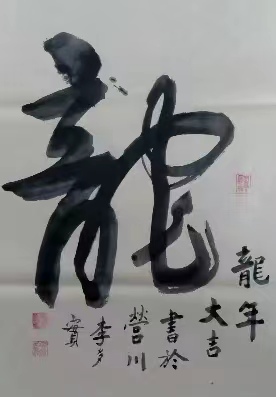 龍
龍年
大吉
書於
營川
李多
寶